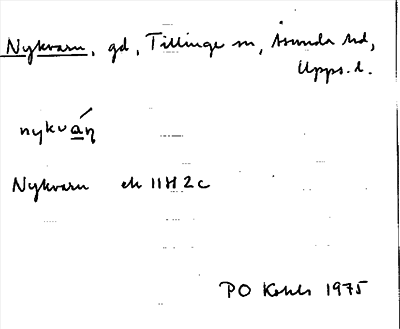 Nykvarn, gd, Tillinge sn, Åsunda hd,
Upps. l.
nykvaꞑ́
Nykvarn ek 11H 2c
PO Kohls 1975